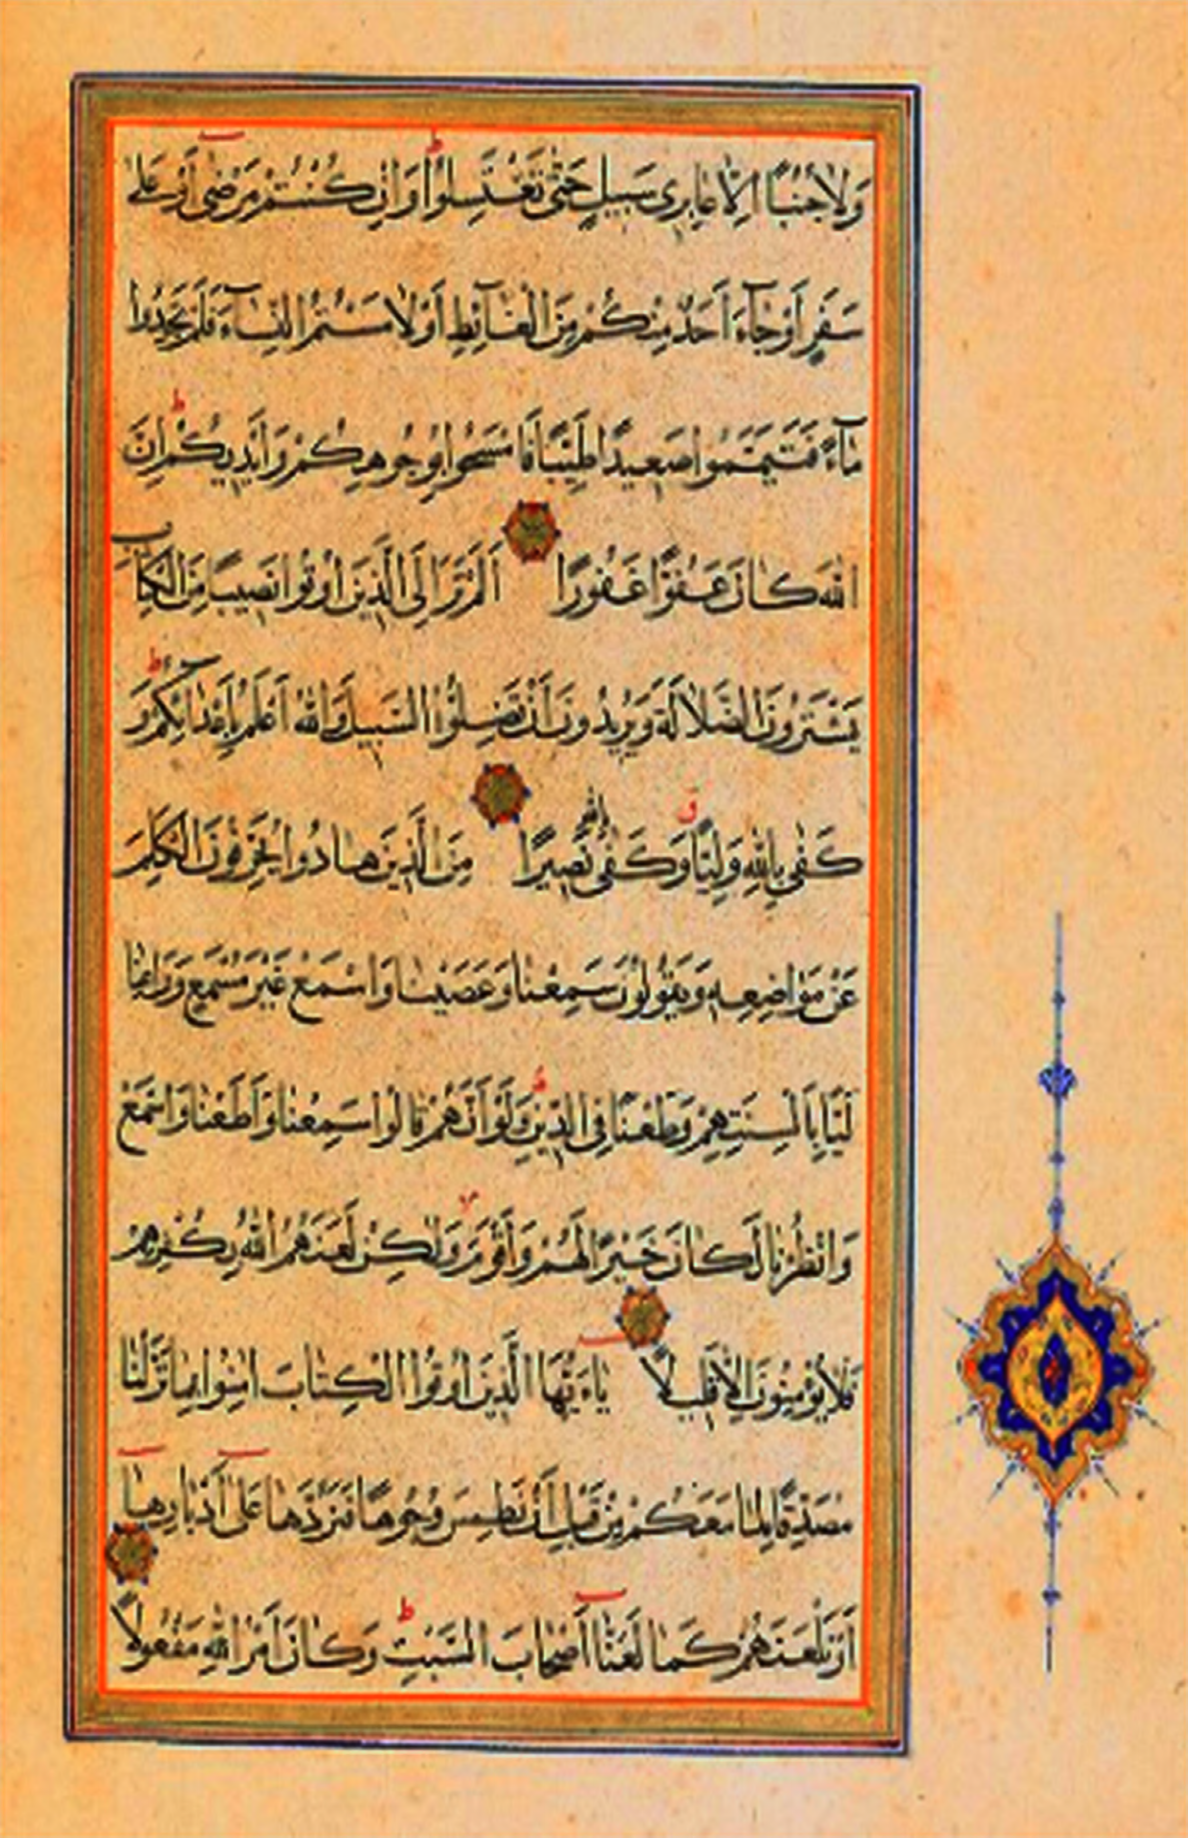 وَلَا جُنُبًا اِلَّا عَابِرِى سَبِيلٍ حَتّٰى تَغْتَسِلُوا ط وَاِنْ كُنْتُمْ مَرْضٰٓى اَوْ عَلٰى
سَفَرٍ اَوْ جَآءَ اَحَدٌ مِنْكُمْ مِنَ الْغَآئِطِ اَوْ لَامَسْتُمُ النِّسَآءَ فَلَمْ تَجِدُوا
مَآءً فَتَيَمَّمُوا صَعِيدًا طَيِّبًا فَامْسَحُوا بِوُجُوهِكُمْ وَاَيْدِيكُمْ ط اِنَّ
اللّٰهَ كَانَ عَفُوًّا غَفُورًا اَلَمْ تَرَ اِلَى الَّذِينَ اُوتُوا نَصِيبًا مِنَ الْكِتَابِ
يَشْتَرُونَ الضَّلَالَةَ وَيُرِيدُونَ اَنْ تَضِلُّوا السَّبِيلَ وَاللّٰهُ اَعْلَمُ بِاَعْدَآئِكُمْ ط وَ
كَفٰى بِاللّٰهِ وَلِيًّا ق وَكَفٰى بِاللّٰهِ نَصِيرًا مِنَ الَّذِينَ هَادُوا يُحَرِّفُونَ الْكَلِمَ
عَنْ مَوَاضِعِهِ وَيَقُولُونَ سَمِعْنَا وَعَصَيْنَا وَاسْمَعْ غَيْرَ مُسْمَعٍ وَرَاعِنَا
لَيًّا بِاَلْسِنَتِهِمْ وَطَعْنًا فِى الدِّينِ ط وَلَوْ اَنَّهُمْ قَالُوا سَمِعْنَا وَاَطَعْنَا وَاسْمَعْ
وَانْظُرْنَا لَكَانَ خَيْرًا لَهُمْ وَاَقْوَمَ وَلٰكِنْ لَعَنَهُمُ اللّٰهُ بِكُفْرِهِمْ
فَلَا يُؤْمِنُونَ اِلَّا قَلِيلًا يَاءَيُّهَا الَّذِينَ اُوتُوا الْكِتَابَ اٰمِنُوا بِمَا نَزَّلْنَا
مُصَدِّقًا لِمَا مَعَكُمْ مِنْ قَبْلِ اَنْ نَطْمِسَ وُجُوهًا فَنَرُدَّهَا عَلٰٓى اَدْبَارِهَآ
اَوْ نَلْعَنَهُمْ كَمَا لَعَنَّآ اَصْحَابَ السَّبْتِ ط وَكَانَ اَمْرُ اللّٰهِ مَفْعُولًا